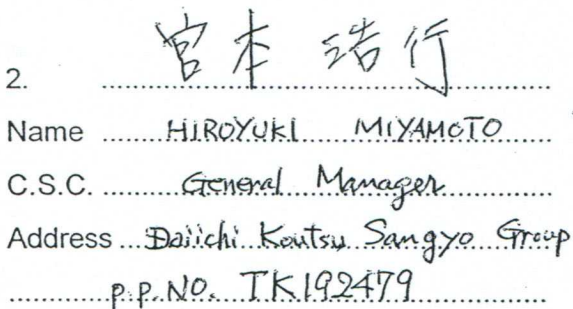 2. 宮本 浩行
Name HIROYUKI MIYAMOTO
C.S.C. General Manager
Address Daiichi Koutsu Sangyo Group
p.p. NO. TK192479